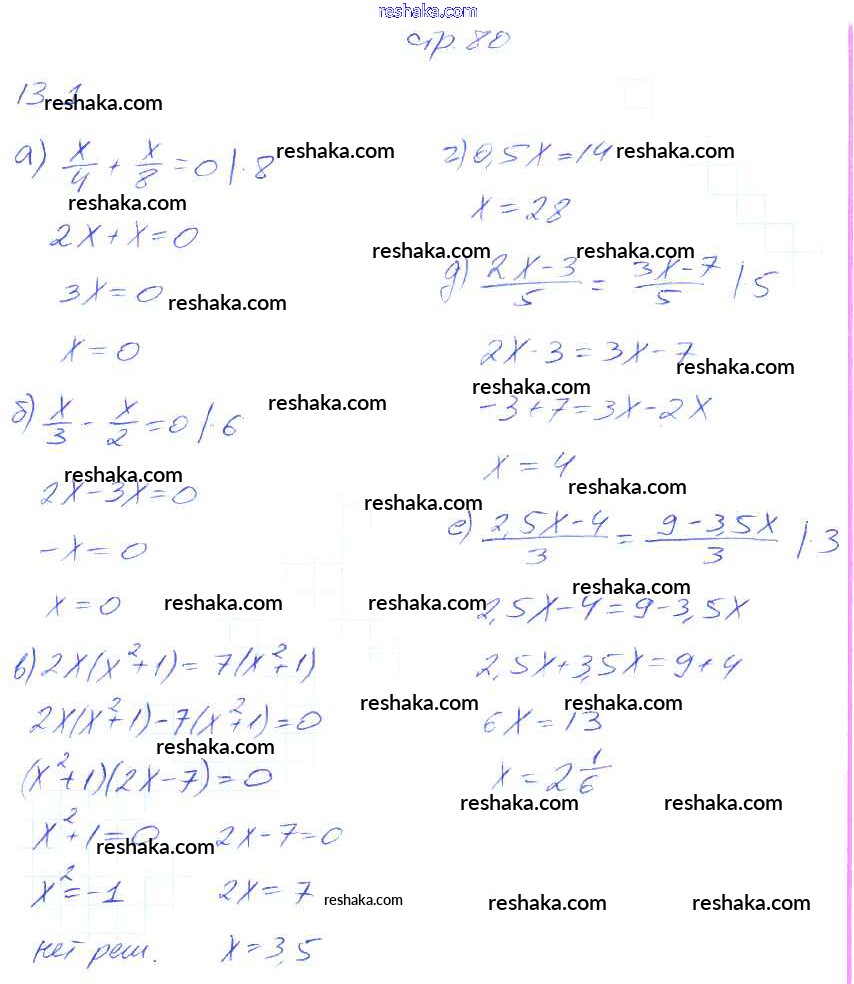 reshaka.com
стр. 80
13.1
reshaka.com
а) x/4 + x/8 = 0 |·8
reshaka.com
reshaka.com
2x + x = 0
3x = 0
reshaka.com
x = 0
б) x/3 - x/2 = 0 |·6
reshaka.com
reshaka.com
2x - 3x = 0
-x = 0
x = 0
reshaka.com
в) 2x(x²+1) = 7(x²+1)
2x(x²+1) - 7(x²+1) = 0
reshaka.com
(x²+1)(2x-7) = 0
x²+1 = 0 2x - 7 = 0
reshaka.com
x² = -1 2x = 7
reshaka.com
нет реш. x = 3,5
г) 0,5x = 14
reshaka.com
x = 28
reshaka.com reshaka.com
д) (2x-3)/5 = (3x-7)/5 |·5
2x - 3 = 3x - 7
reshaka.com
reshaka.com
-3 + 7 = 3x - 2x
x = 4
reshaka.com
reshaka.com
е) (2,5x-4)/3 = (9-3,5x)/3 |·3
reshaka.com
reshaka.com
2,5x - 4 = 9 - 3,5x
2,5x + 3,5x = 9 + 4
reshaka.com reshaka.com
6x = 13
x = 2 1/6
reshaka.com reshaka.com
reshaka.com reshaka.com